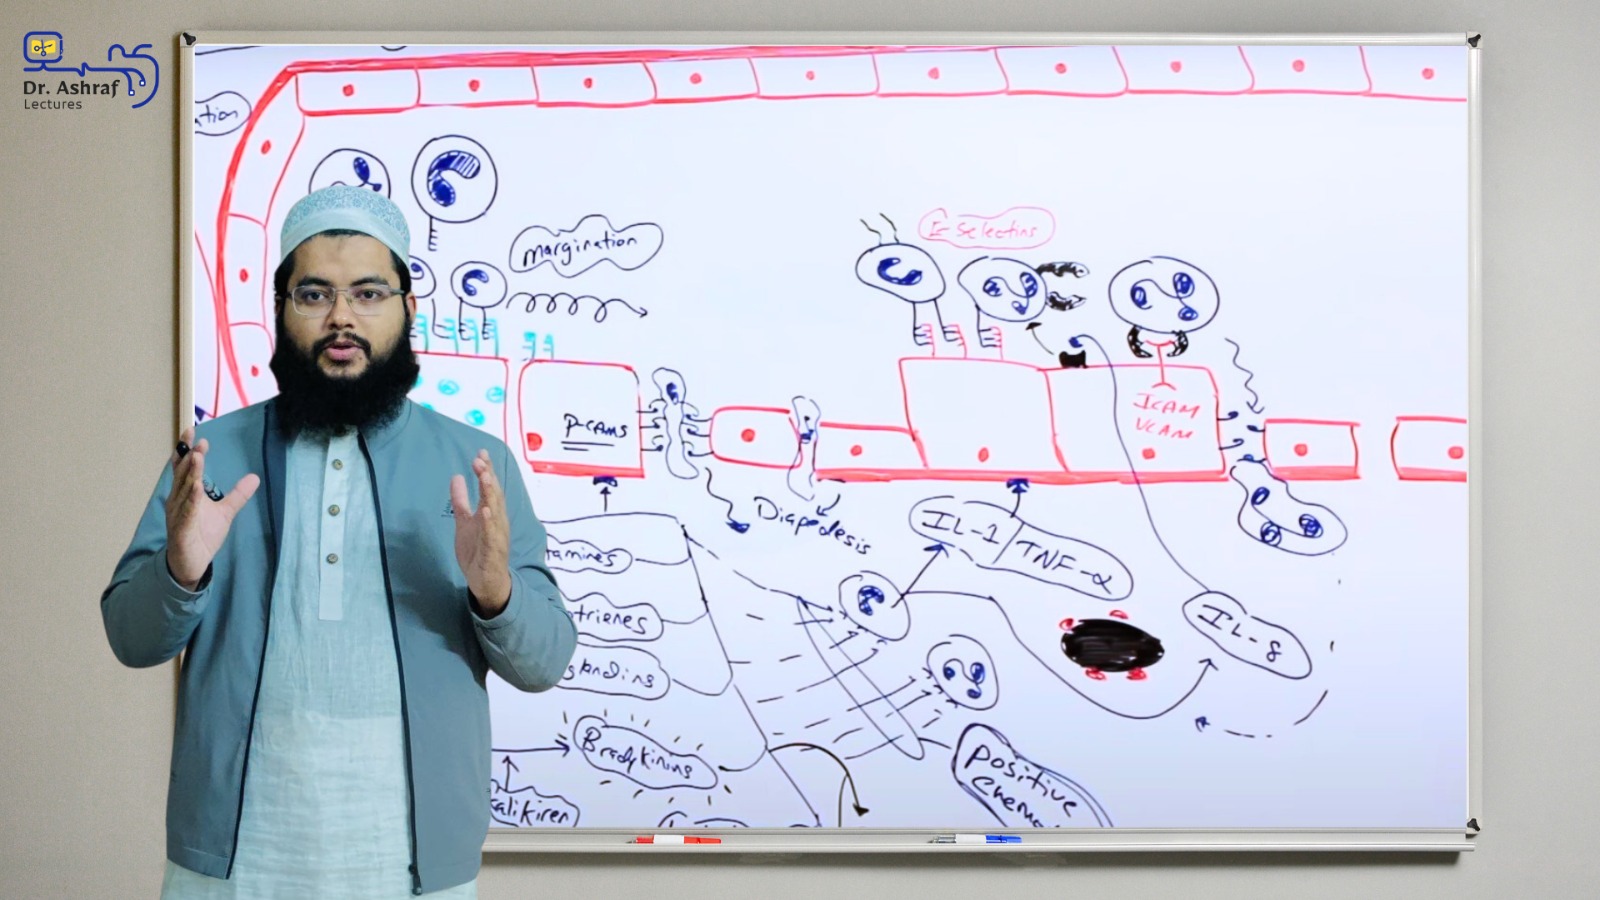 Dr. Ashraf
Lectures
ation
Margination
E-Selectins
P-CAMS
ICAM
VCAM
Diapedesis
IL-1/TNF-α
tamines
trienes
glandins
IL-8
Bradykinins
kalikiren
positive
Chemo